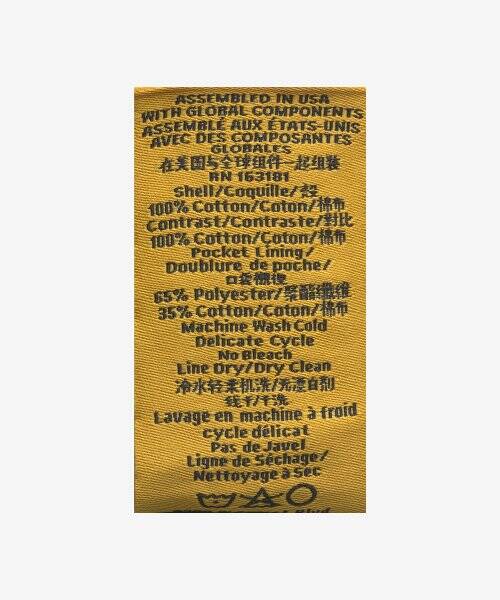 ASSEMBLED IN USA
WITH GLOBAL COMPONENTS
ASSEMBLÉ AUX ÉTATS-UNIS
AVEC DES COMPOSANTES
GLOBALES
在美国与全球组件一起组装
RN 163181
Shell/Coquille/殼
100% Cotton/Coton/棉布
Contrast/Contraste/對比
100% Cotton/Coton/棉布
Pocket Lining/
Doublure de poche/
口袋棚裡
65% Polyester/聚酯纖維
35% Cotton/Coton/棉布
Machine Wash Cold
Delicate Cycle
No Bleach
Line Dry/Dry Clean
冷水轻柔机洗/无漂白剂
线干/干洗
Lavage en machine à froid
cycle délicat
Pas de Javel
Ligne de Séchage/
Nettoyage à Sec